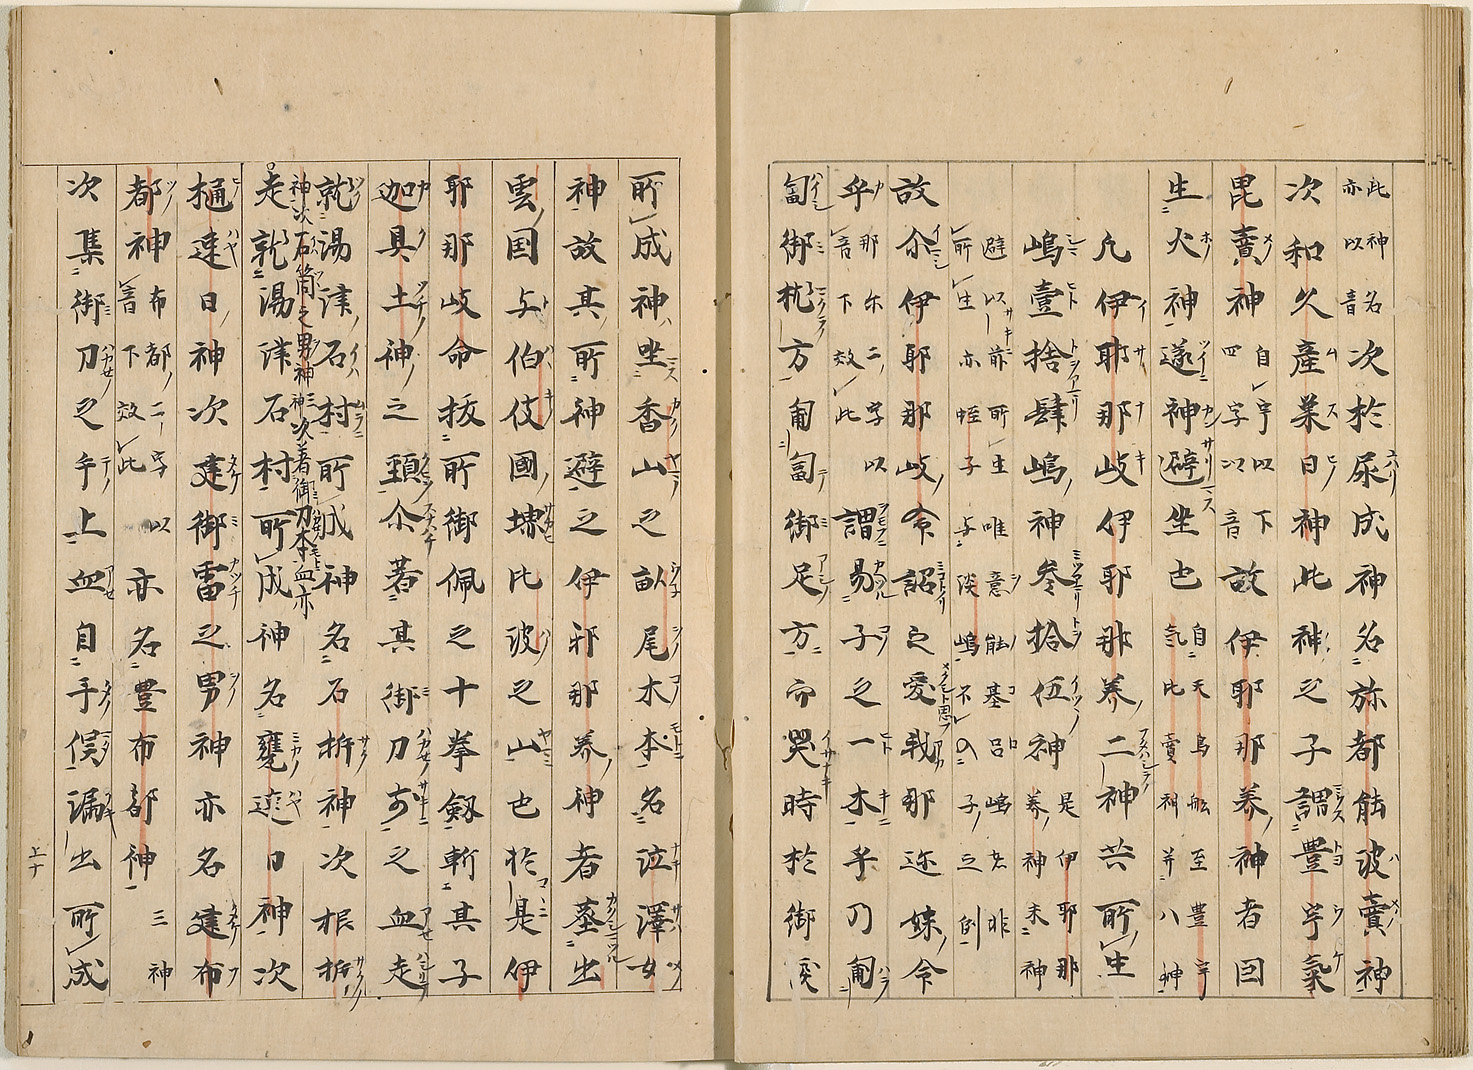 此神名
亦以音
次於屎成神名弥都能波賣神
次和久產巣日神此神之子謂豊宇氣
毘賣神
自宇以下
四字以音
故伊耶那美神者因
生火神遂神避坐也
自天鳥船至豊宇
氣比賣神并八神
凡伊耶那岐伊耶那美二神共所生
嶋壹拾肆嶋神参拾伍神
是伊耶那
美神未神
避以前所生唯意能基呂嶋者非
所生亦蛭子与淡嶋不入子之例
故尒伊耶那岐命詔之愛我那迩妹命
乎
那尓二字以
音下效此
謂易子之一木乎乃匍
匐御枕方匍匐御足方而哭時於御涙
所成神坐香山之畝尾木本名泣澤女
神故其所神避之伊邪那美神者葬出
雲国与伯伎國堺比波之山也於是伊
耶那岐命拔所御佩之十拳劔斬其子
迦具土神之頸尒若其御刀前之血走
就湯津石村所成神名石析神次根析
神次石筒之男神三神次著御刀本血亦
走就湯津石村所成神名甕速日神次
樋速日神次建御雷之男神亦名建布
都神
布都二字以
音下效此
亦名豊布都神
三神
次集御刀之手上血自手俣漏出所成
上十